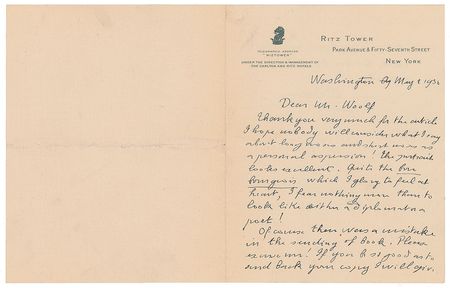 RITZ TOWER
PARK AVENUE & FIFTY-SEVENTH STREET
NEW YORK
TELEGRAPHIC ADDRESS
"RITZTOWER"
UNDER THE DIRECTION & MANAGEMENT OF
THE CARLTON AND RITZ HOTELS
Washington May 193
Dear Mr. Woolf
Thank you very much for the article
I hope nobody will consider what I say
about long and short as
a personal aspersion! The portrait
looks excellent. Quite the bon
bourgeois which I glory to feel at
heart, I fear nothing more than to
look like either a diplomat or a
poet!
Of course there was a mistake
in the sending of book. Please
excuse me! If you be so good as to
send back your copy I will give